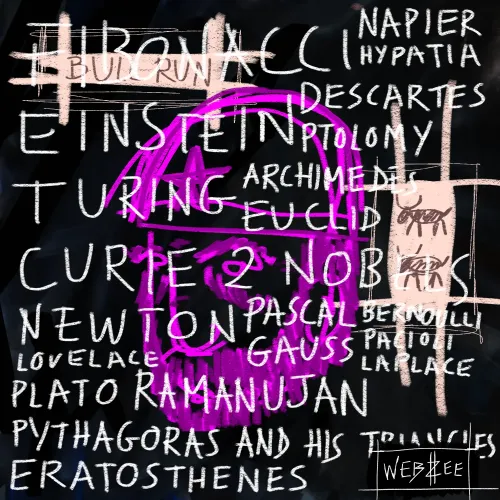 FIBONACCI
NAPIER
HYPATIA
BULL RUN
DESCARTES
EINSTEIN
PTOLOMY
TURING
ARCHIMEDES
EUCLID
CURIE 2 NOBELS
NEWTON
PASCAL
BERNOULLI
LOVELACE
GAUSS
PACIOLI
LAPLACE
PLATO RAMANUJAN
PYTHAGORAS AND HIS TRIANGLES
ERATOSTHENES
WEBZEE